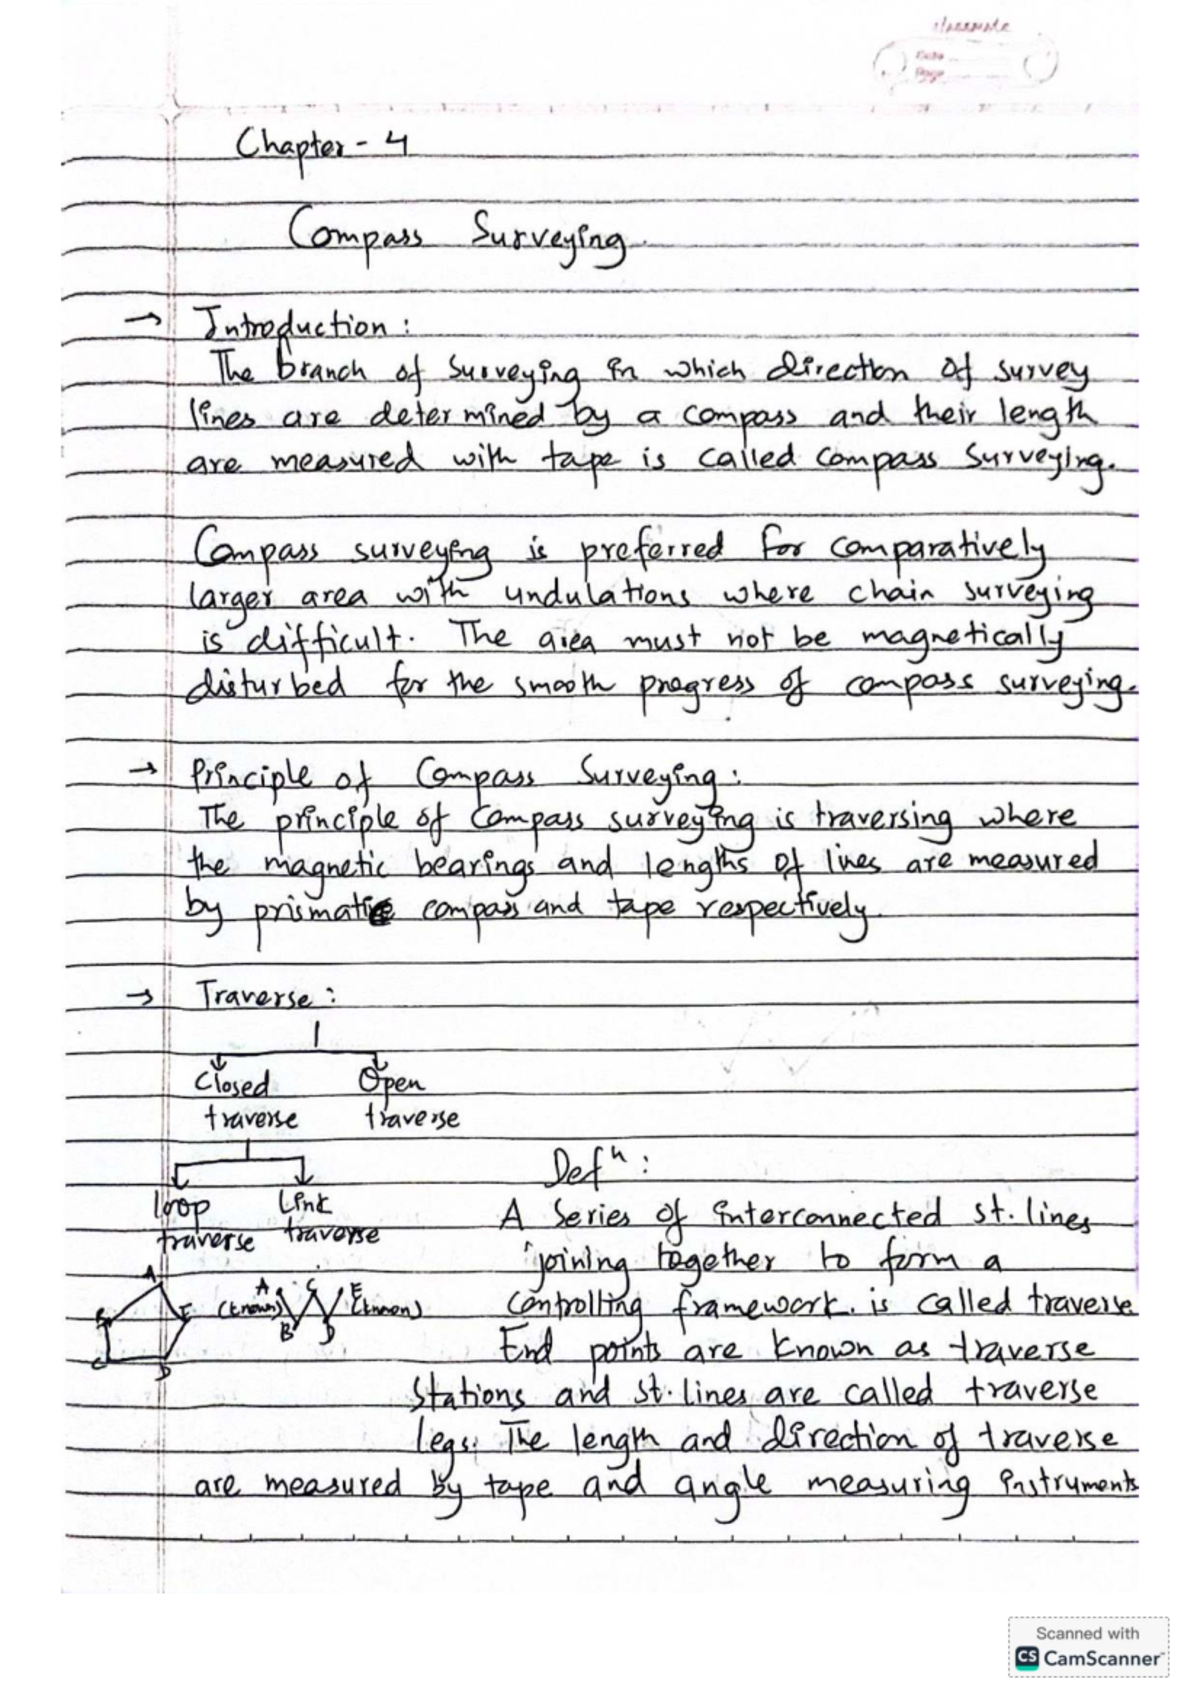 classmate
Date
Page
Chapter - 4
Compass Surveying
→ Introduction :
The branch of surveying in which direction of survey
lines are determined by a compass and their length
are measured with tape is called compass surveying.
Compass surveying is preferred for comparatively
larger area with undulations where chain surveying
is difficult. The area must not be magnetically
disturbed for the smooth progress of compass surveying.
→ Principle of Compass Surveying :
The principle of compass surveying is traversing where
the magnetic bearings and lengths of lines are measured
by prismatic compass and tape respectively.
→ Traverse :
Closed traverse
Open traverse
Loop traverse
Link traverse
A
B
C
D
E
A (known)
B
C
D
E (known)
Defn :
A series of interconnected st. lines
joining together to form a
controlling framework. is called traverse
End points are known as traverse
stations and st. lines are called traverse
legs. The length and direction of traverse
are measured by tape and angle measuring instruments
Scanned with
CS CamScanner